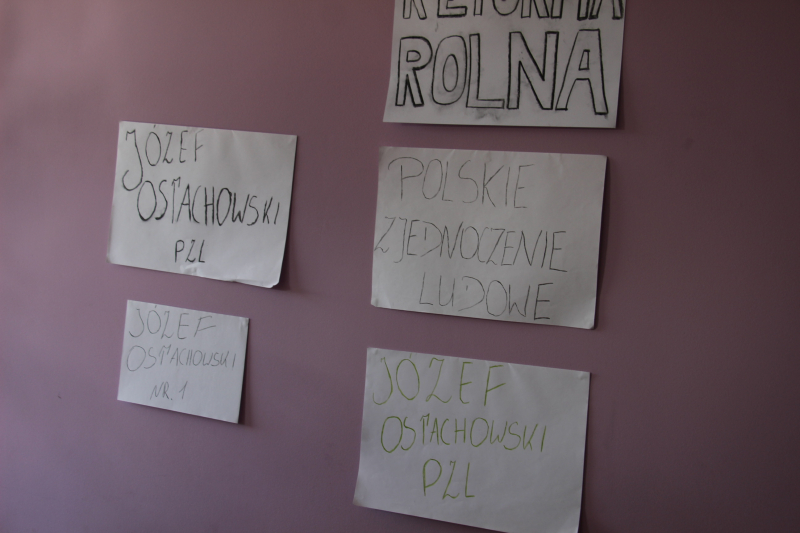 REFORMA
ROLNA
JÓZEF
OSTACHOWSKI
PZL
POLSKIE
ZJEDNOCZENIE
LUDOWE
JÓZEF
OSTACHOWSKI
NR. 1
JÓZEF
OSTACHOWSKI
PZL